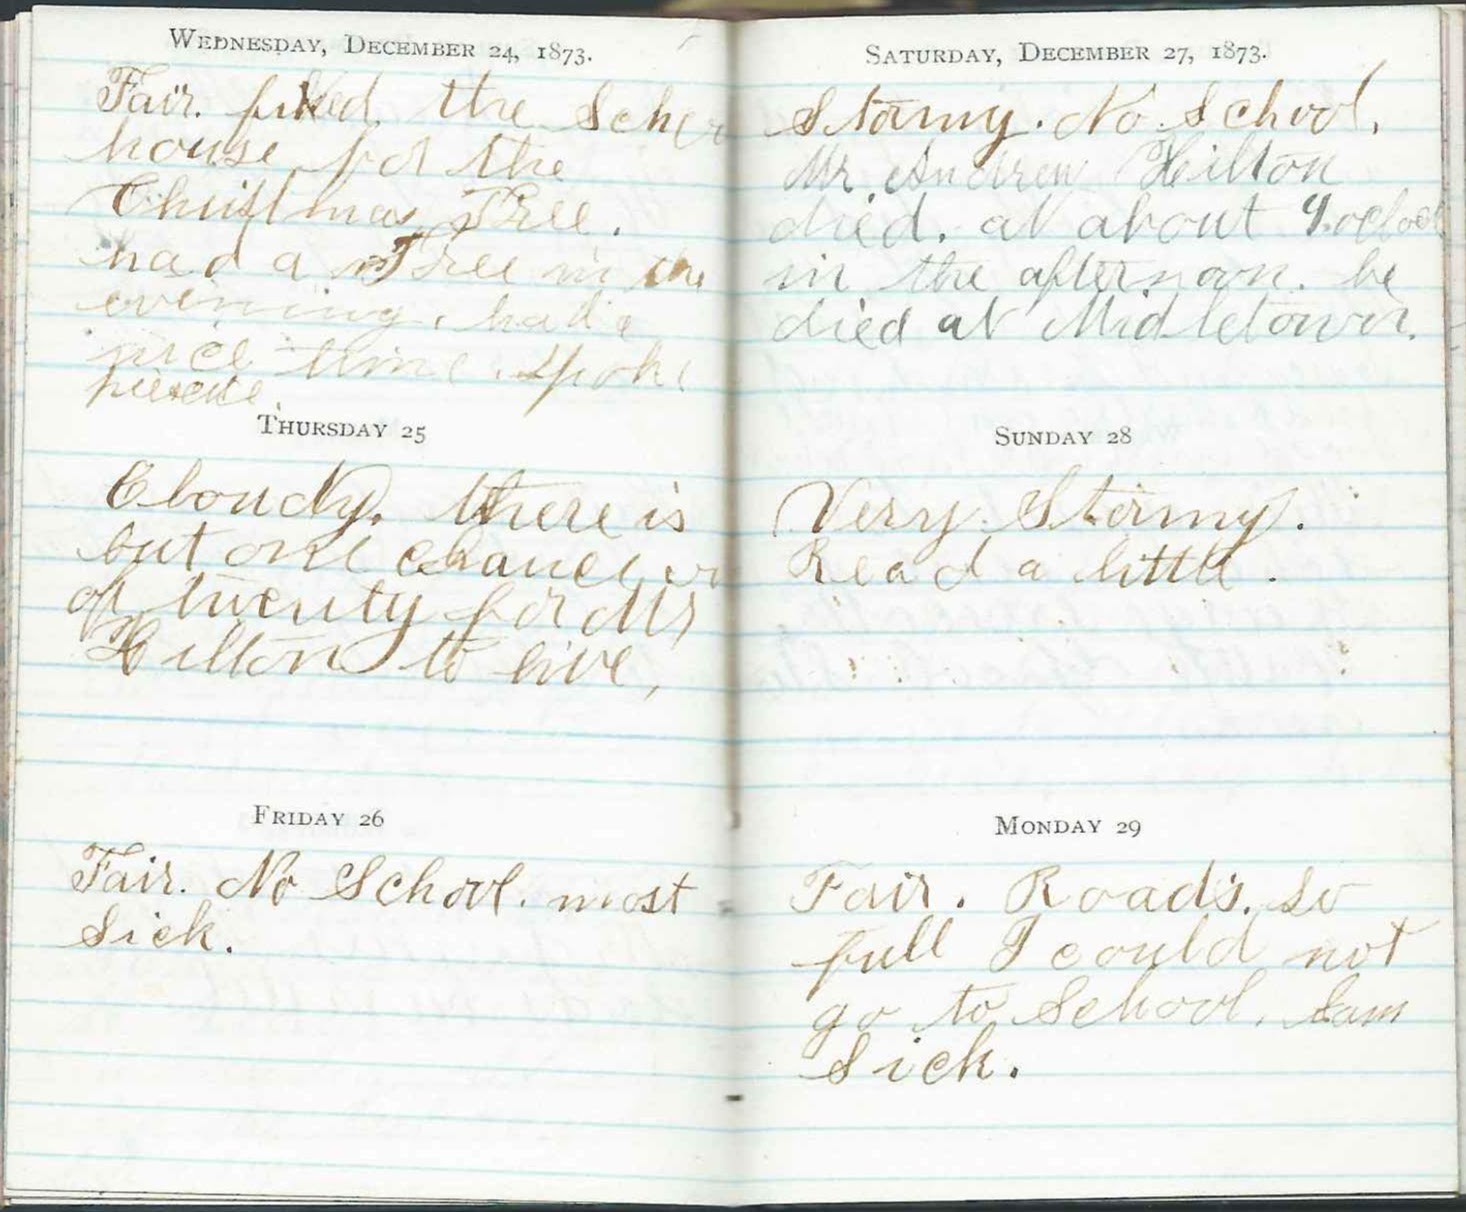 WEDNESDAY, DECEMBER 24, 1873.
Fair. fixed the Scho
house for the
Christmas Tree.
had a Tree in the
evening, had a
nice time. spoke
THURSDAY 25
Cloudy. there is
but one chance in
of twenty for Mr
Hilton to live,
FRIDAY 26
Fair. No School. most
Sick.
SATURDAY, DECEMBER 27, 1873.
Stormy. No. School,
Mr. Andrew Hilton
died. at about oclock
in the afternoon. he
died at Midletown.
SUNDAY 28
Very. Stormy.
Read a little.
MONDAY 29
Fair. Roads. so
full I could not
go to School, Sam
Sick.